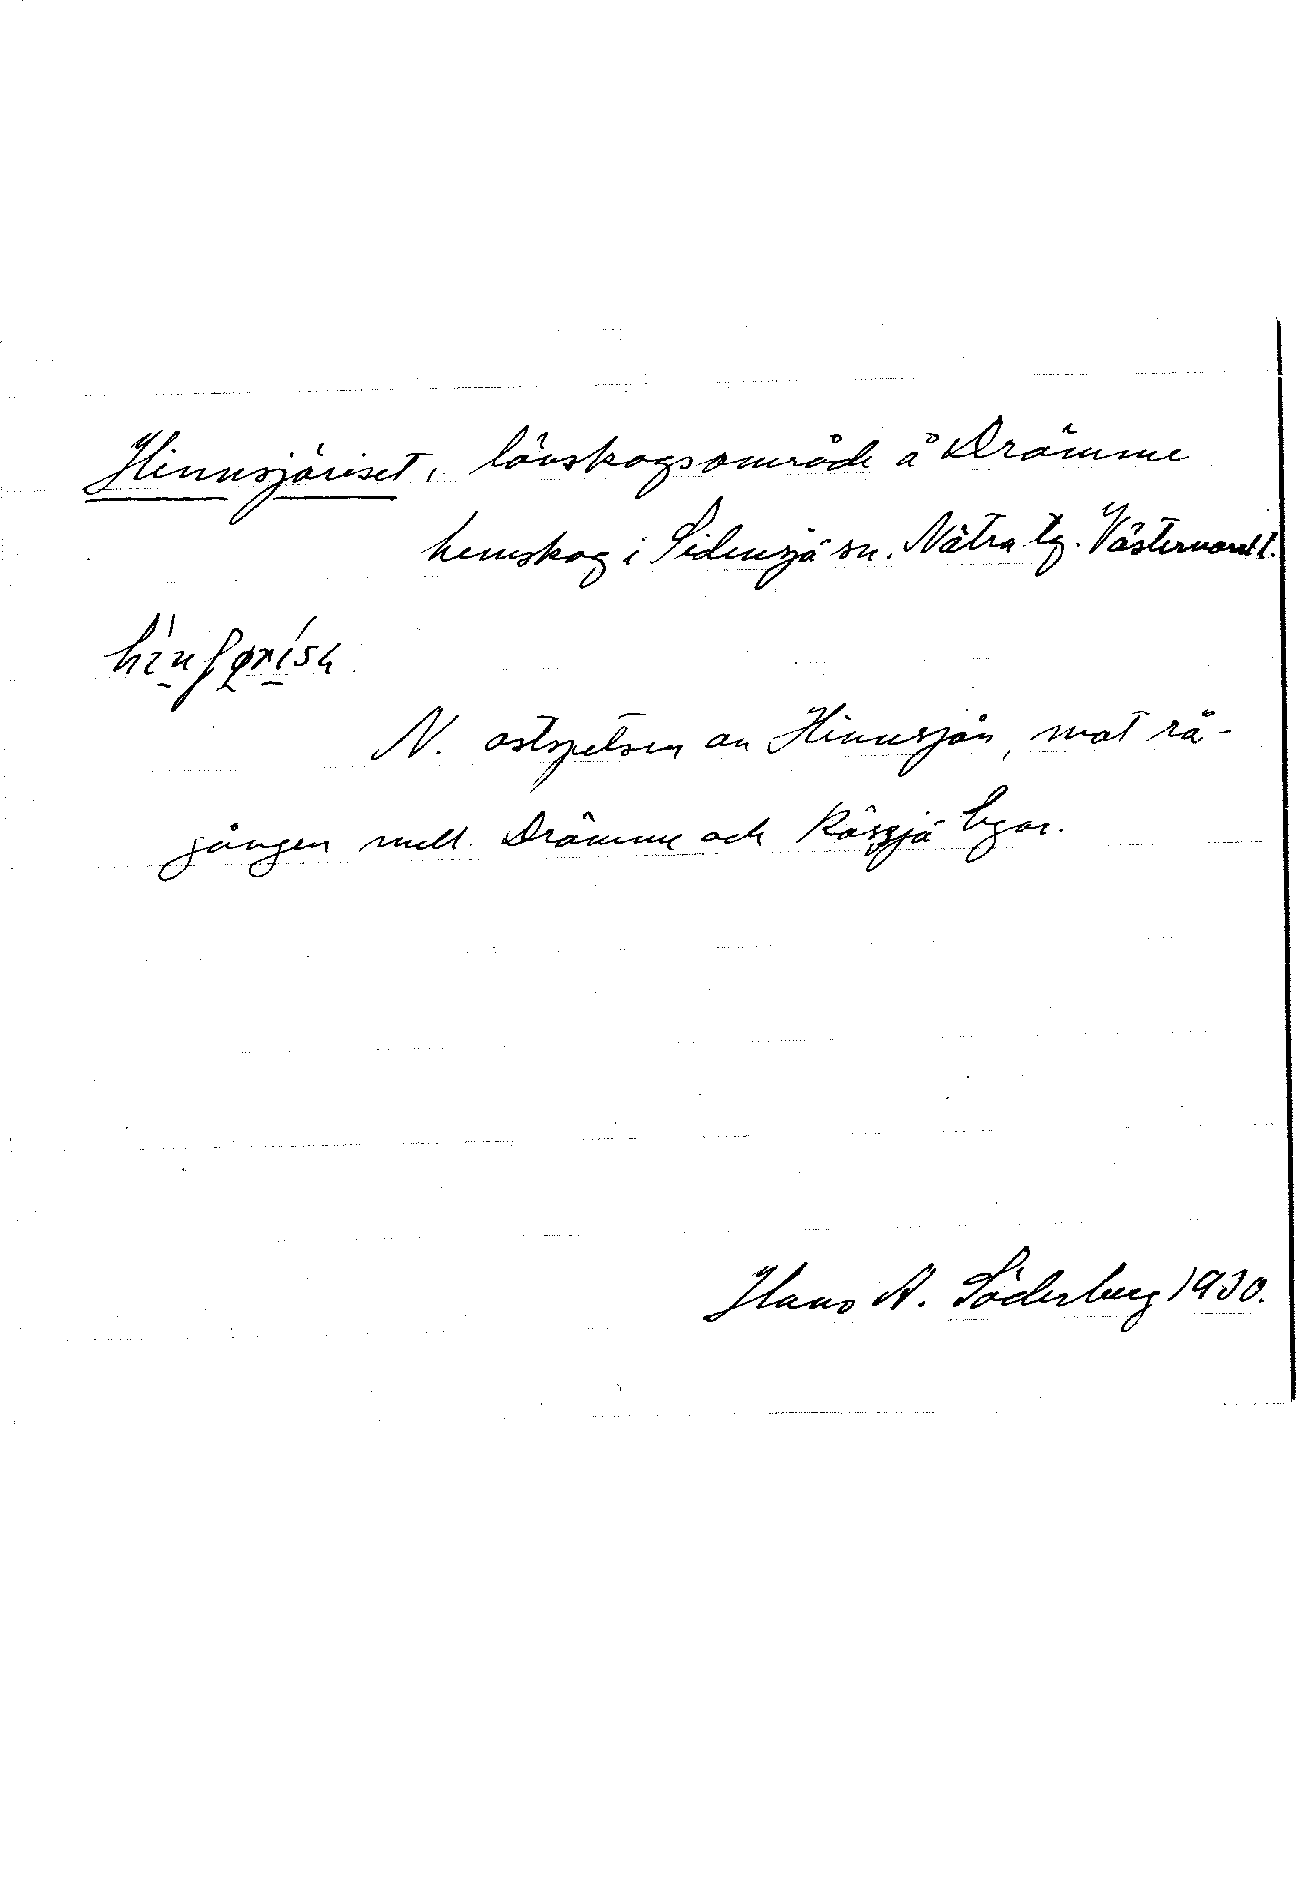 Hinnsjöriset, lövskogsområde å Drömme
hemskog i Sidensjö sn. Nätra tg. Västernorrl l.
N. ostspetsen av Hinnsjön, mot rå-
gången mell. Drömme och Rössjö byar.
Hans A. Söderberg 1930.